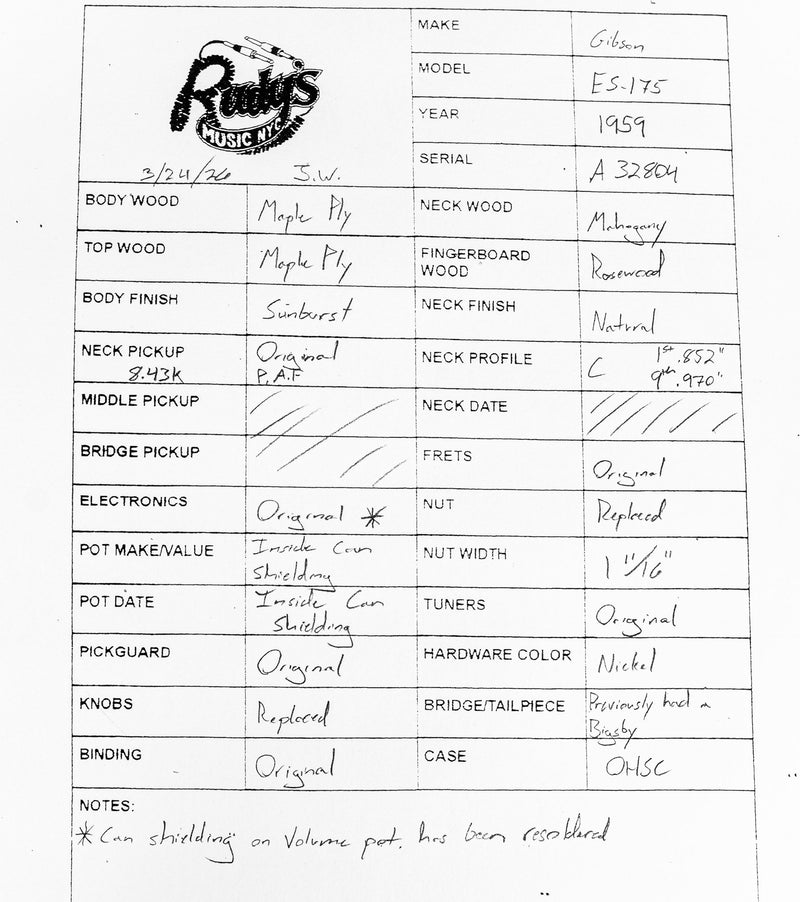 Rudy's
MUSIC NYC
3/24/26 J.W.
MAKE Gibson
MODEL ES-175
YEAR 1959
SERIAL A 32804
BODY WOOD Maple Ply
NECK WOOD Mahogany
TOP WOOD Maple Ply
FINGERBOARD
WOOD Rosewood
BODY FINISH Sunburst
NECK FINISH Natural
NECK PICKUP Original
8.43K P.A.F
NECK PROFILE C 1st .852"
9th .970"
MIDDLE PICKUP
NECK DATE
BRIDGE PICKUP
FRETS Original
ELECTRONICS Original *
NUT Replaced
POT MAKE/VALUE Inside Can
Shielding
NUT WIDTH 1 11/16"
POT DATE Inside Can
Shielding
TUNERS Original
PICKGUARD Original
HARDWARE COLOR Nickel
KNOBS Replaced
BRIDGE/TAILPIECE Previously had a
Bigsby
BINDING Original
CASE OHSC
NOTES:
* Can shielding on Volume pot. has been resoldered